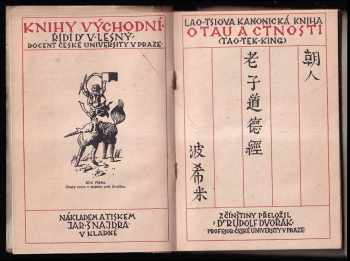 KNIHY VÝCHODNÍ·
ŘÍDÍ Dr V·LESNÝ·
DOCENT ČESKÉ UNIVERSITY V PRAZE·
NÁKLADEM A TISKEM
JAR·ŠNAJDRA·
V KLADNĚ
LAO-TSIOVA KANONICKÁ KNIHA
O TAU A CTNOSTI
(TAO-TEK-KING)
朝人
老子道德經
波希米
Z ČÍNŠTINY PŘELOŽIL
Dr RUDOLF DVOŘÁK·
PROFESOR ČESKÉ UNIVERSITY V PRAZE·